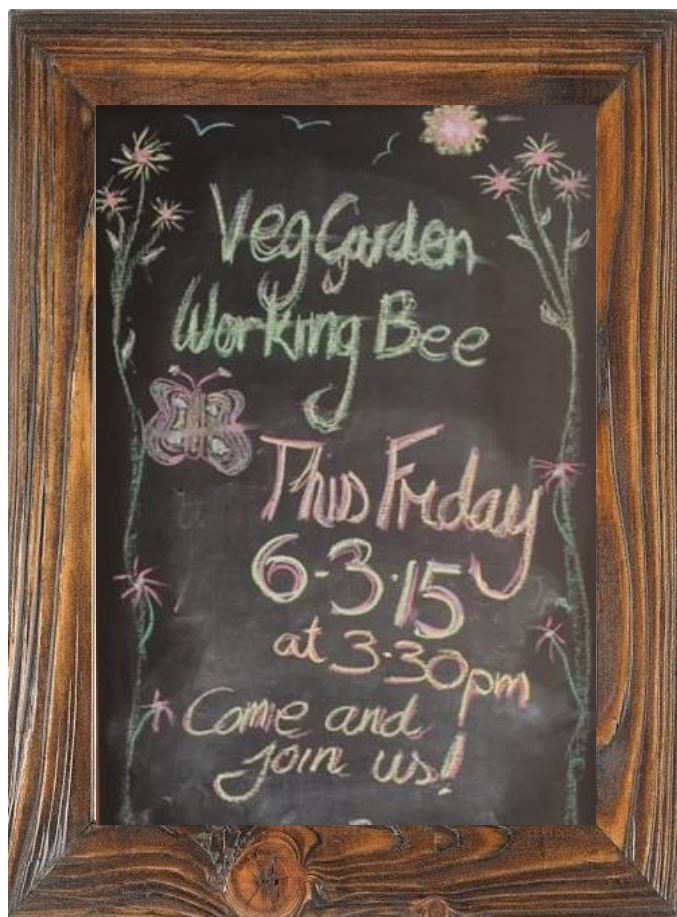 Veg Garden
Working Bee
This Friday
6-3-15
at 3.30pm
Come and
join us!